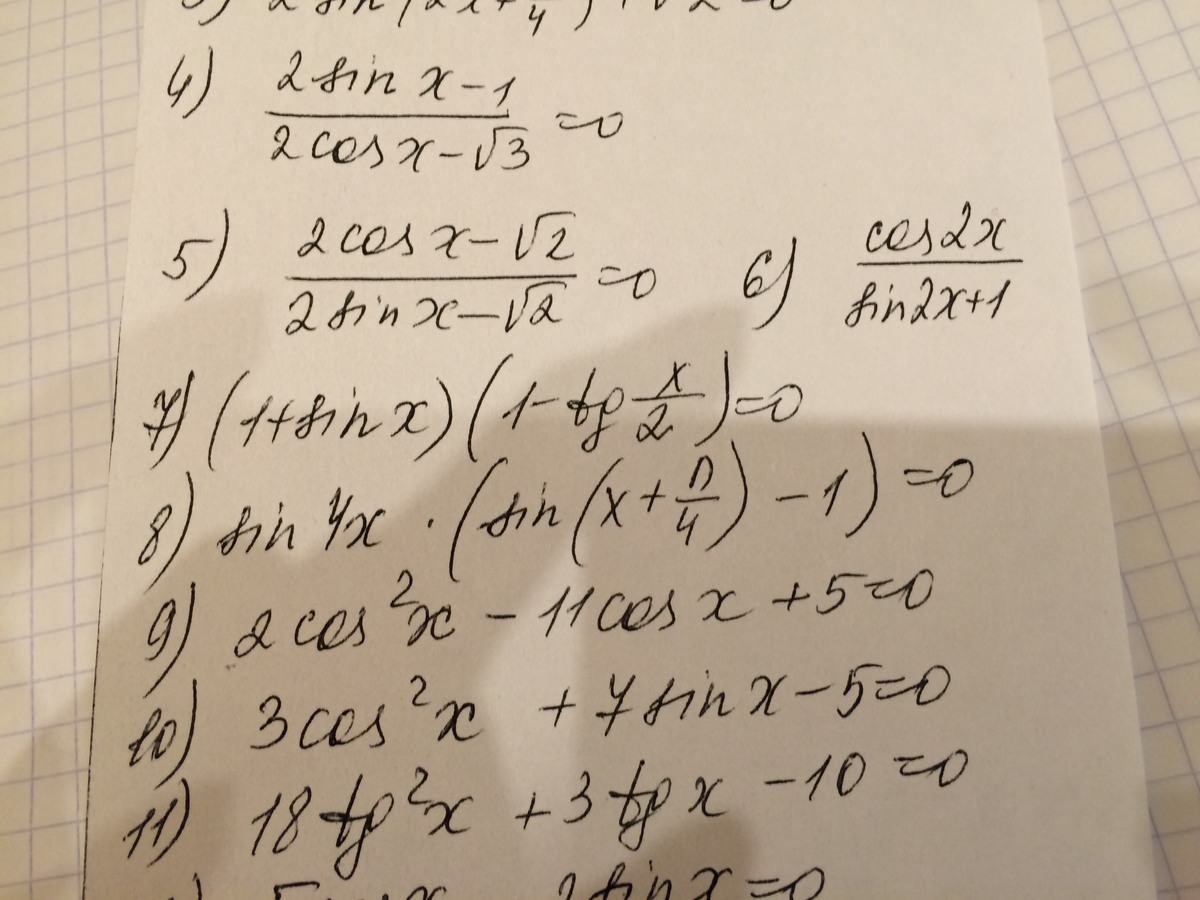 2 sin (2x + π/4) + √2 = 0
4) (2 sin x - 1)/(2 cos x - √3) = 0
5) (2 cos x - √2)/(2 sin x - √2) = 0 6) cos 2x/(sin 2x + 1)
7) (1 + sin x)(1 - tg x/2) = 0
8) sin 4x · (sin (x + π/4) - 1) = 0
9) 2 cos² x - 11 cos x + 5 = 0
10) 3 cos² x + 7 sin x - 5 = 0
11) 18 tg² x + 3 tg x - 10 = 0
2 sin x = 0